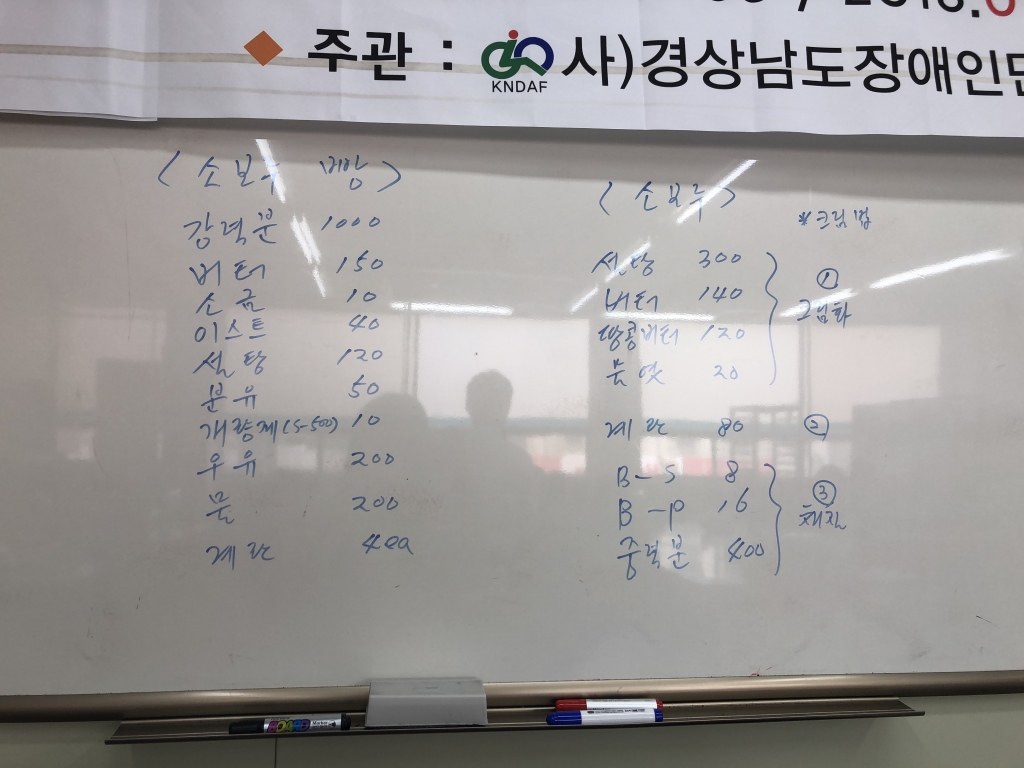 ◆ 주관 : KNDAF 사)경상남도장애인
< 소보루 빵 >
강력분 1000
버터 150
소금 10
이스트 40
설탕 120
분유 50
개량제(S-500) 10
우유 200
물 200
계란 4ea
< 소보루 >
*크림법
설탕 300
버터 140
땅콩버터 120
물엿 20
① 크림화
계란 80 ②
B-S 8
B-P 16
중력분 400
③ 체질